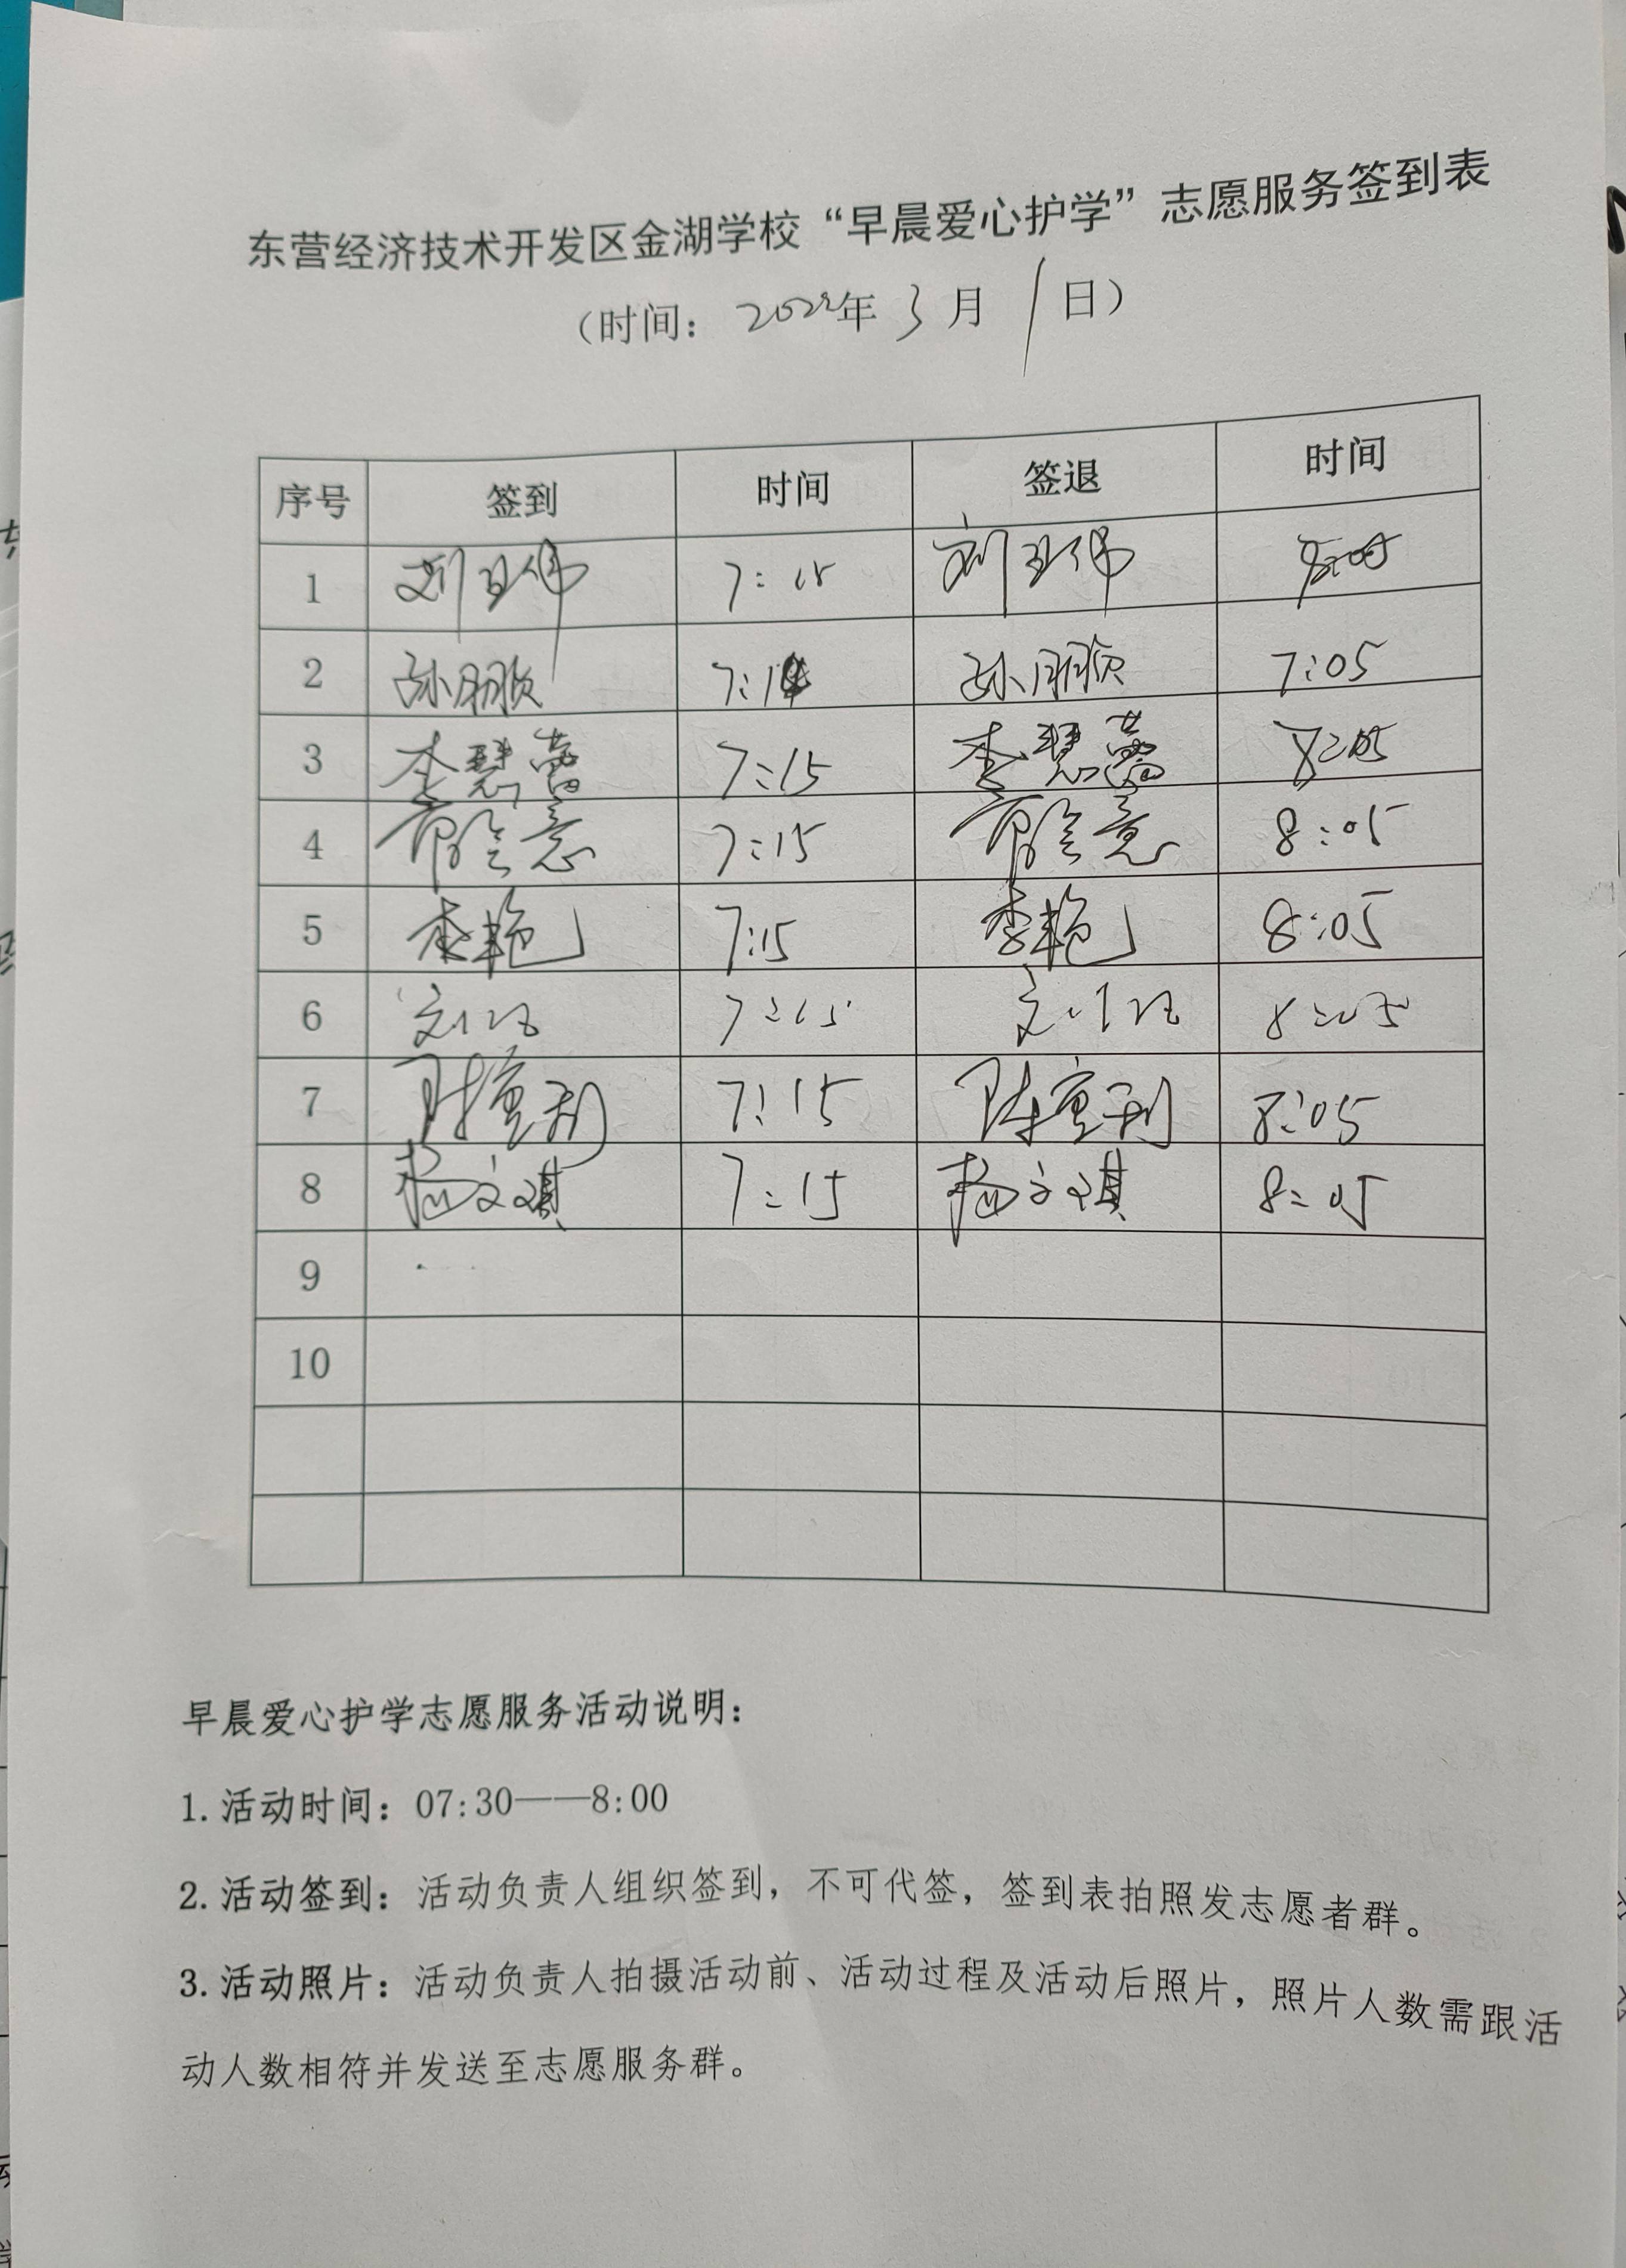 东营经济技术开发区金湖学校“早晨爱心护学”志愿服务签到表
(时间: 2022年 3月 1日)
序号 签到 时间 签退 时间
1 刘玉伟 7:15 刘玉伟
2 孙鹏欣 7:1 孙鹏欣 7:05
3 李慧蕾 7:15 李慧蕾 8:05
4 7:15 8:05
5 李艳 7:15 李艳 8:05
6 刘 7:15 刘 8:05
7 陈重利 7:15 陈重利 8:05
8 杨文琪 7:15 杨文琪 8:05
9
10
早晨爱心护学志愿服务活动说明:
1.活动时间:07:30——8:00
2.活动签到:活动负责人组织签到,不可代签,签到表拍照发志愿者群。
3.活动照片:活动负责人拍摄活动前、活动过程及活动后照片,照片人数需跟活
动人数相符并发送至志愿服务群。